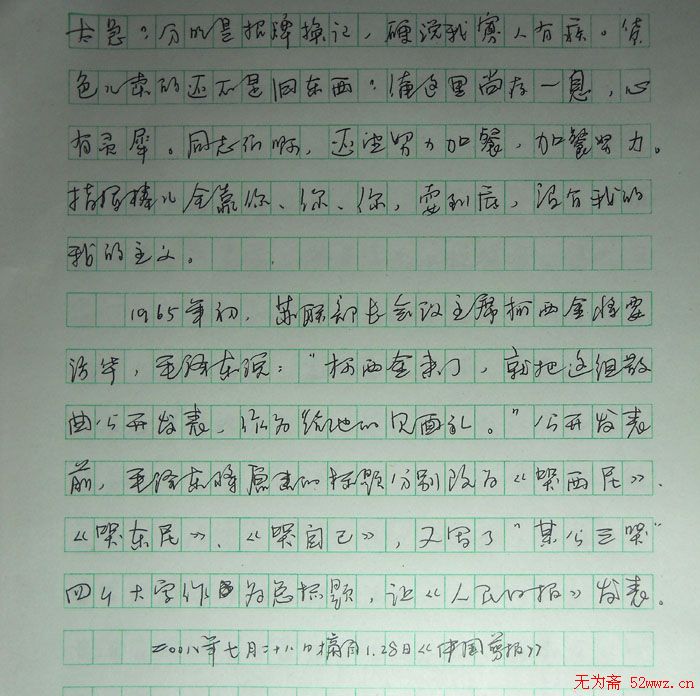 大急：分明是招牌换记，硬说我寡人有疾。货
色儿卖的还不是旧东西？俺这里尚存一息，心
有灵犀。同志们啊，还望努力加餐，加餐努力。
指挥棒儿全靠你、你、你，要到底，没有我的
我的主义。
1965年初，苏联部长会议主席柯西金将要
访华，毛泽东说：“柯西金来了，就把这组散
曲公开发表，作为给他的见面礼。”公开发表
前，毛泽东将原来的标题分别改为《哭西尼》、
《哭东尼》、《哭自己》，又写了“某公三哭”
四个大字作为总标题，让《人民日报》发表。
二00八年七月二十八日摘自1.28日《中国剪报》
无为斋 52wwz.cn